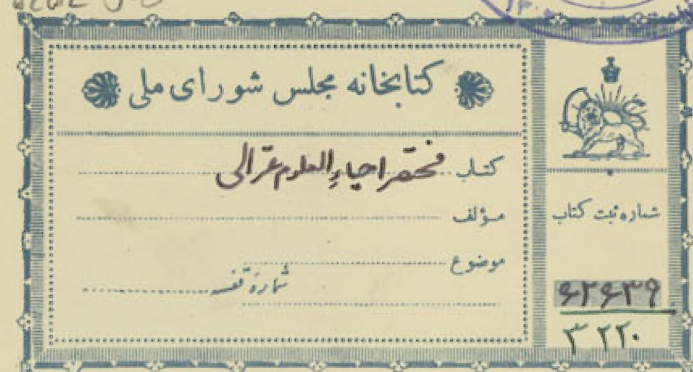 کتابخانه مجلس شورای ملی
کتاب مختصر احیاء العلوم غزالی
مؤلف
موضوع
شماره قفسه
شماره ثبت کتاب
۶۲۶۳۹
۳۲۲۰